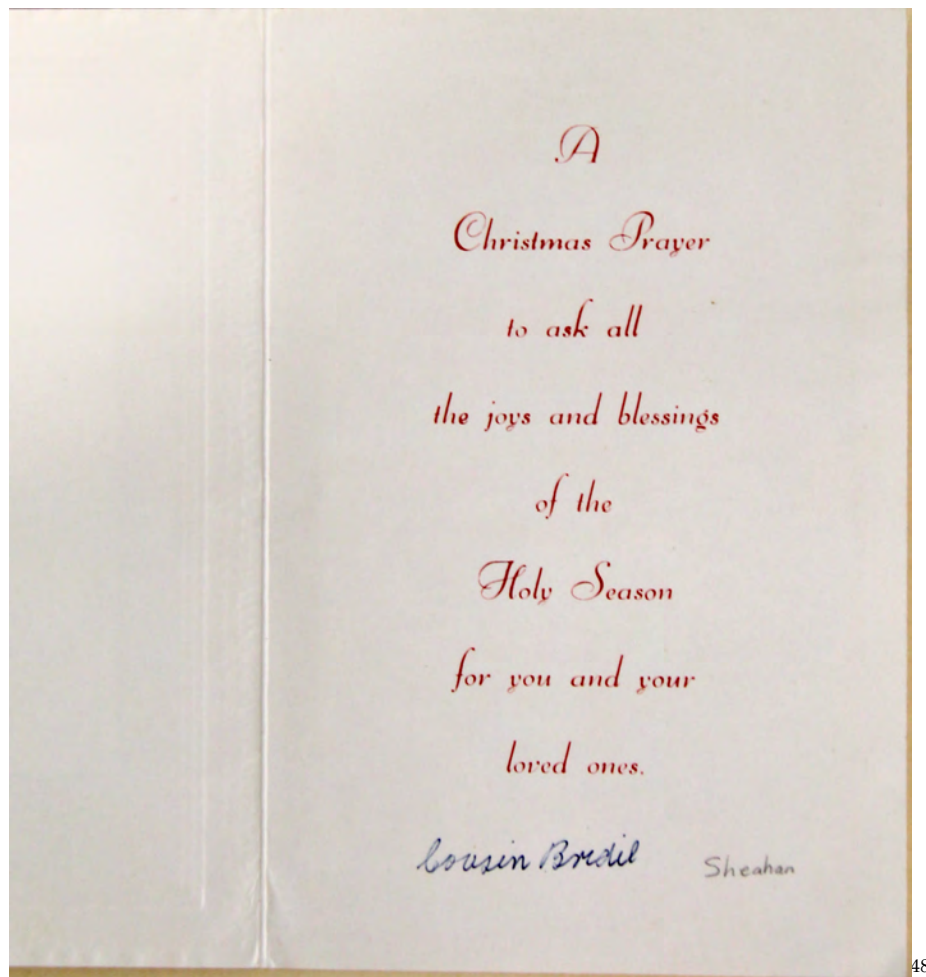 A
Christmas Prayer
to ask all
the joys and blessings
of the
Holy Season
for you and your
loved ones.
Cousin Bridil Sheahan
48